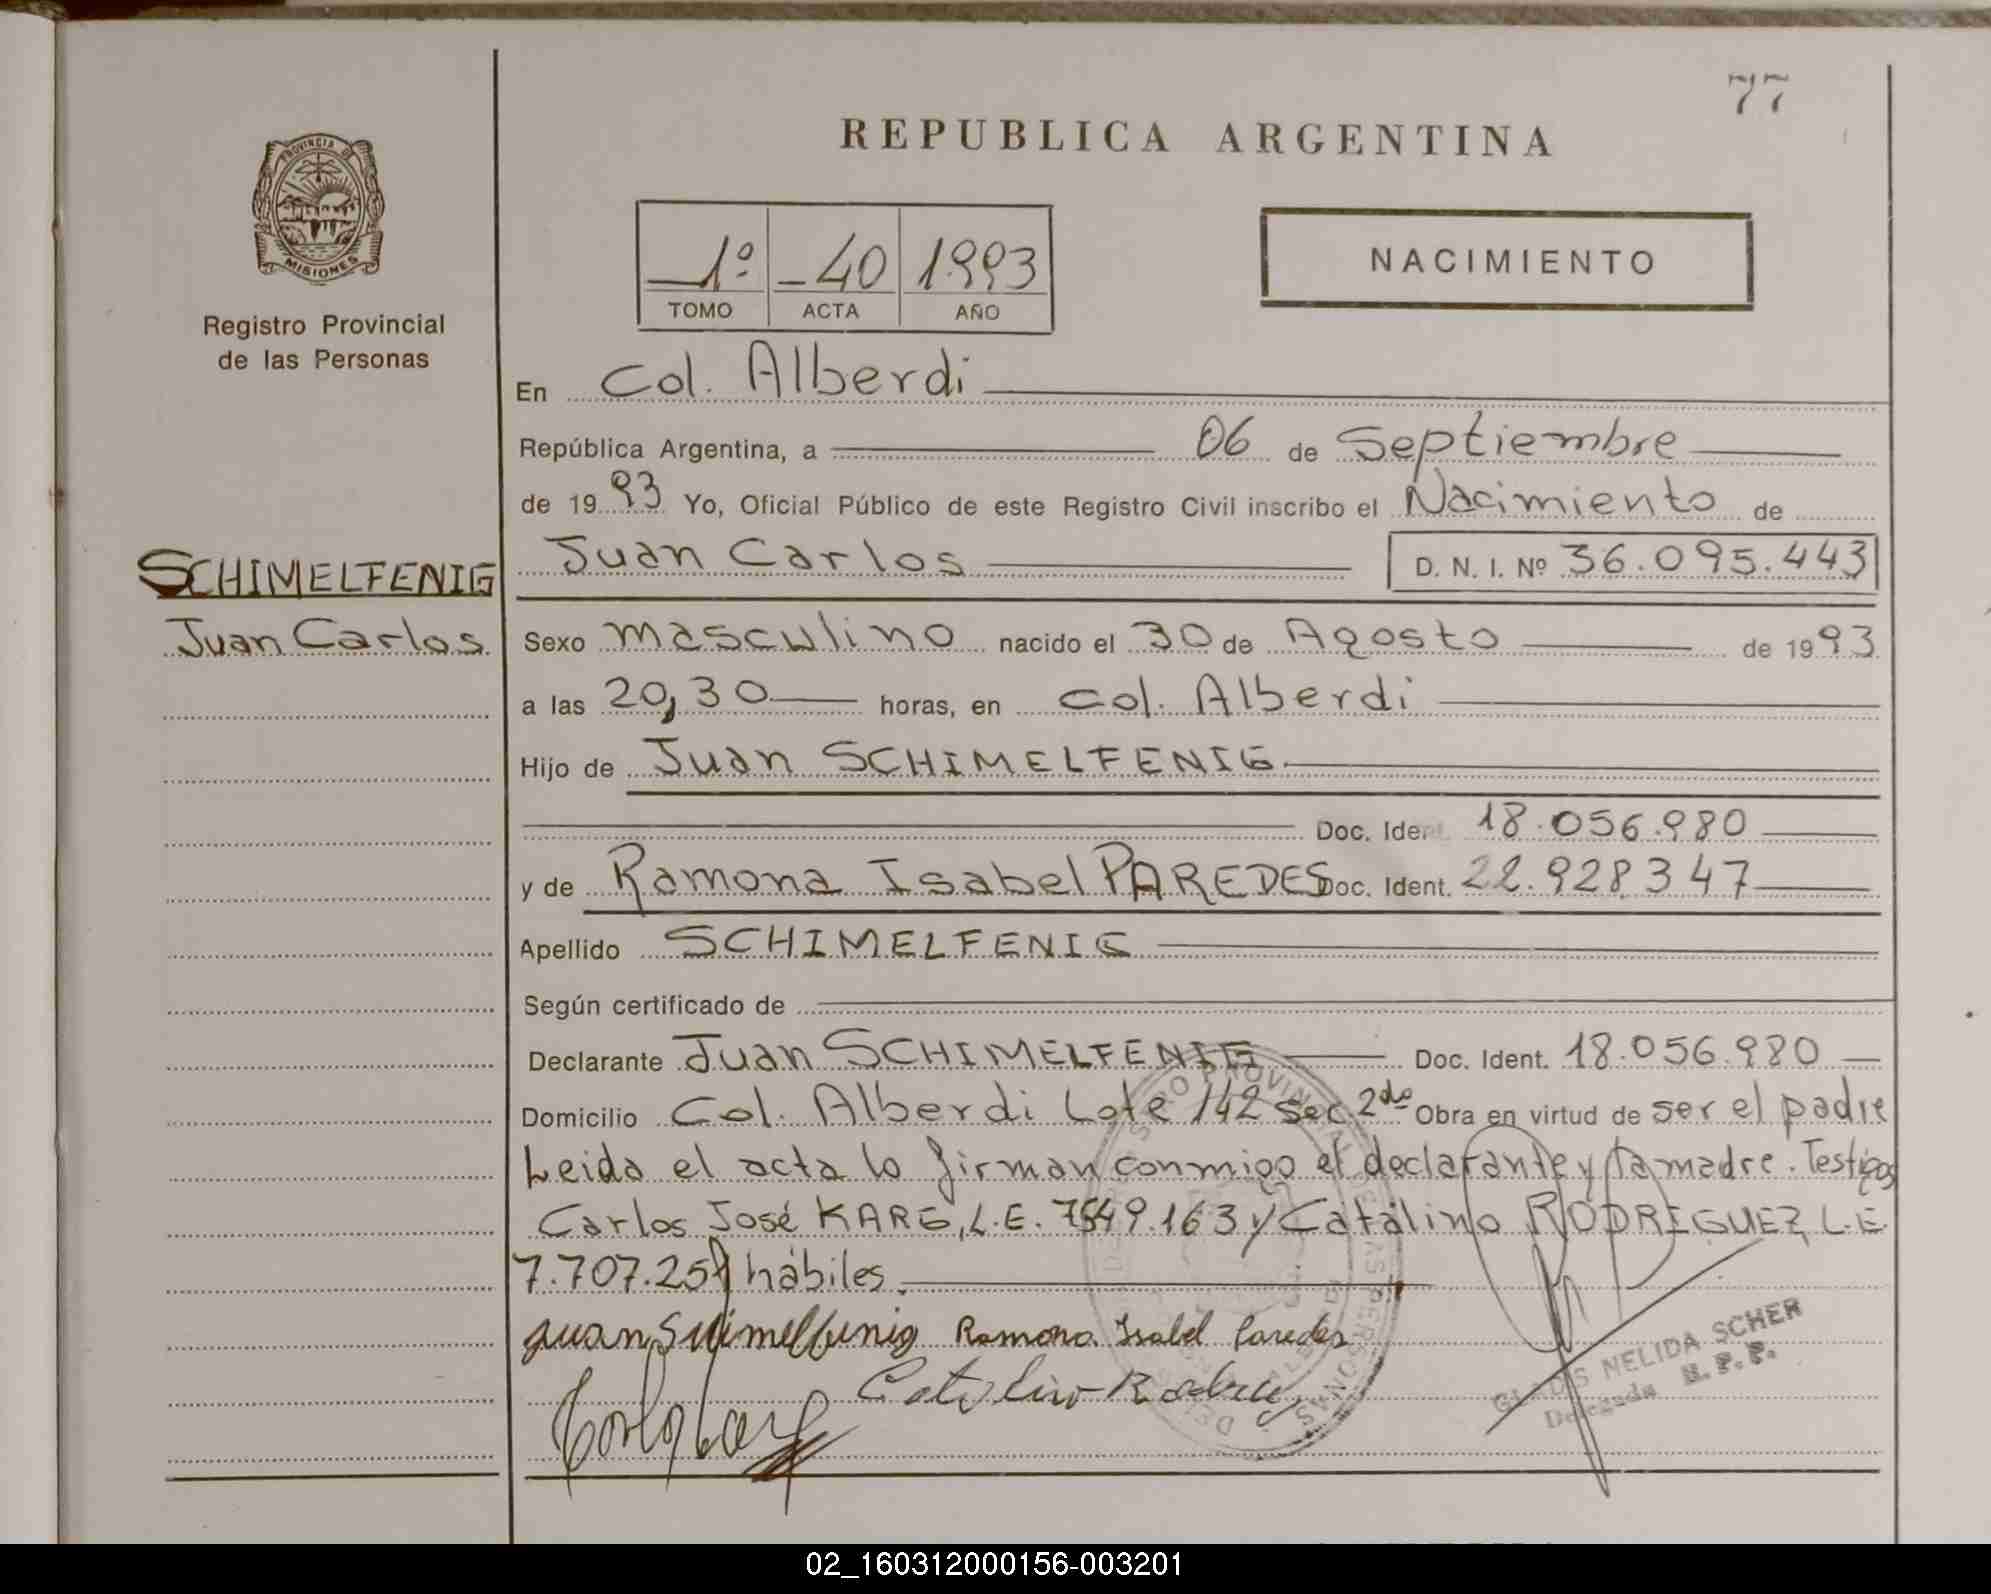 77
REPUBLICA ARGENTINA
PROVINCIA DE
MISIONES
Registro Provincial
de las Personas
1º 40 1993
TOMO ACTA AÑO
NACIMIENTO
En Col. Alberdi
República Argentina, a 06 de Septiembre
de 1993 Yo, Oficial Público de este Registro Civil inscribo el Nacimiento de
Juan Carlos D. N. I. Nº 36.095.443
SCHIMELFENIG
Juan Carlos
Sexo masculino nacido el 30 de Agosto de 1993
a las 20,30 horas, en Col. Alberdi
Hijo de Juan SCHIMELFENIG
Doc. Ident. 18.056.980
y de Ramona Isabel PAREDES Doc. Ident. 22.928347
Apellido SCHIMELFENIG
Según certificado de
Declarante Juan SCHIMELFENIG Doc. Ident. 18.056.980
Domicilio Col. Alberdi Lote 142 Sec. 2da Obra en virtud de ser el padre
Leida el acta lo firman conmigo el declarante y la madre. Testigos
Carlos José KARG, L.E. 7549.163 y Catalino RODRIGUEZ, L.E.
7.707.25 hábiles.
Ramona Isabel Paredes
GLADIS NELIDA SCHER
Delegada R.P.P.
02_160312000156-003201